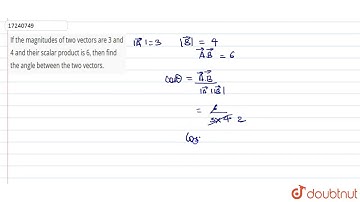 17240749
If the magnitudes of two vectors are 3 and
4 and their scalar product is 6, then find
the angle between the two vectors.
|A⃗| = 3 |B⃗| = 4
A⃗.B⃗ = 6
cosθ = A⃗.B⃗
|A⃗| |B⃗|
= 6
3×4 2
cos
doubtnut